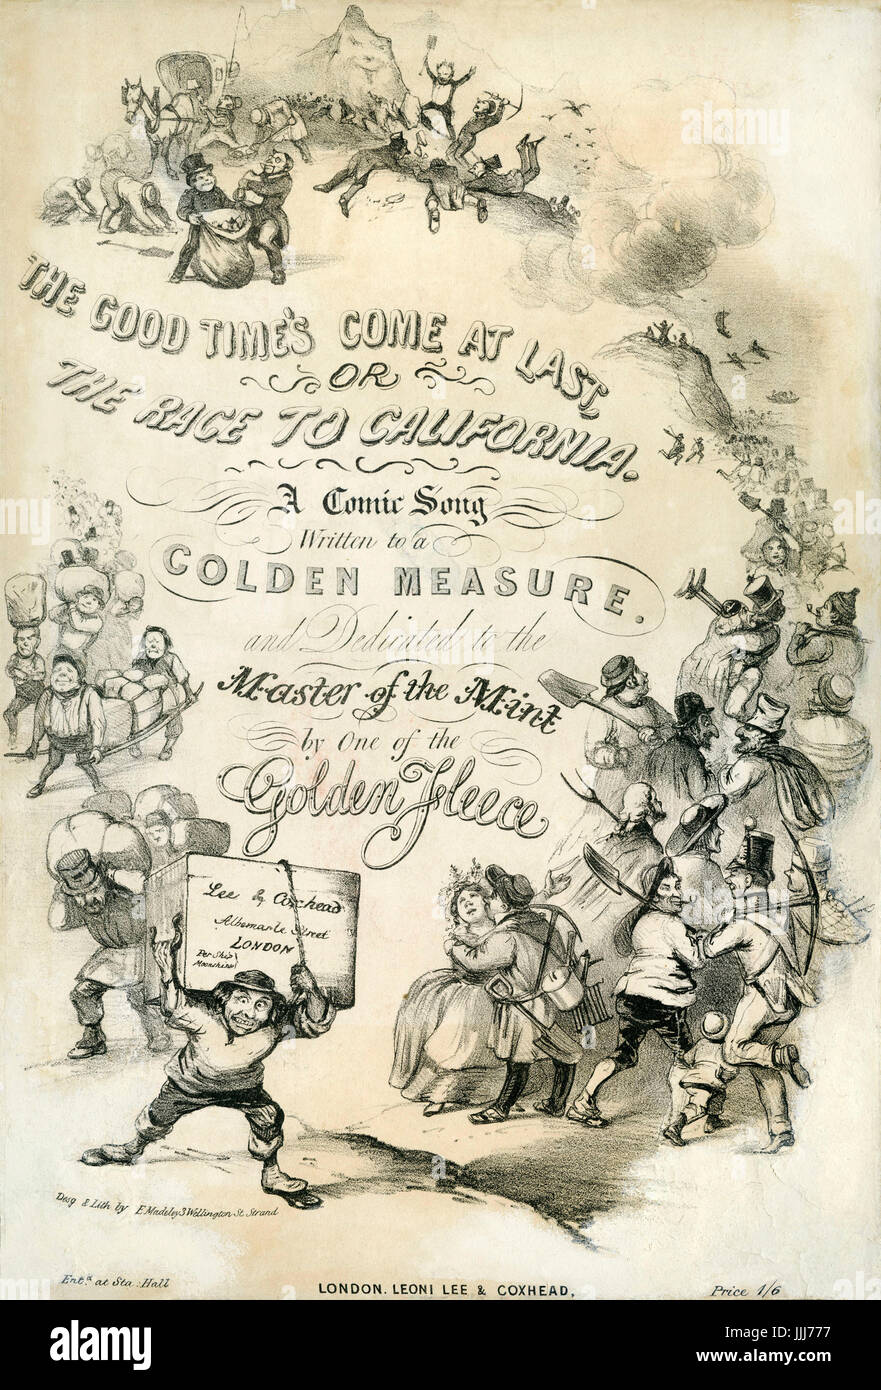 THE GOOD TIME'S COME AT LAST,
OR
THE RACE TO CALIFORNIA.
A Comic Song
Written to a
GOLDEN MEASURE.
and Dedicated to the
Master of the Mint
by One of the
Golden Fleece
Lee & Coxhead
Albemarle Street
LONDON
Per Ship
Moonshine
Desg & Lith by E Madeley 3 Wellington St. Strand
Ent.d at Sta: Hall
LONDON. LEONI LEE & COXHEAD.
Price 1/6
alamy
alamy
alamy
a
a
a
a
alamy
Image ID: JJJ777
www.alamy.com